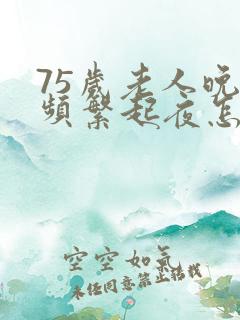 75歲老人晚
頻繁起夜怎
空空如氣
未经同意禁止搭载